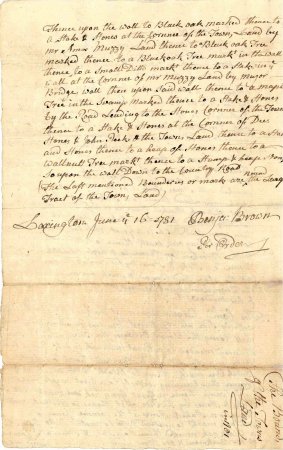 Thence upon the wall to Black oak marked thence to
a Stake & Stones at the Cornner of the Town Land by
mr Amos Muzzy Land thence to Black oak Tree
marked thence to a Black oak Tree mark'd in the wall
thence to a Small Ditto mark'd thence to a Stake in ye
wall at the Corner of mr Muzzy Land by Major
Bridge wall thence upon Said wall thence to a maple
Tree in the Swamp marked thence to a Stake & Stones
by the Road Leading to the Stones Corner of the
thence to a Stake & Stones at the Corner of
Stones & John Hack & the Towns Land thence to a Stake
and Stones thence to a heap of Stones thence to a
wallnutt Tree mark'd thence to a Stump & heap Stones
So upon the wall Down to the Country Road
(The Last mentioned Bounderies or marks are the Long
Tract of the Town Land)
Lexington June ye 16-1781 Benjer Brown
Per Order
The Bounds
of the Towns
Land